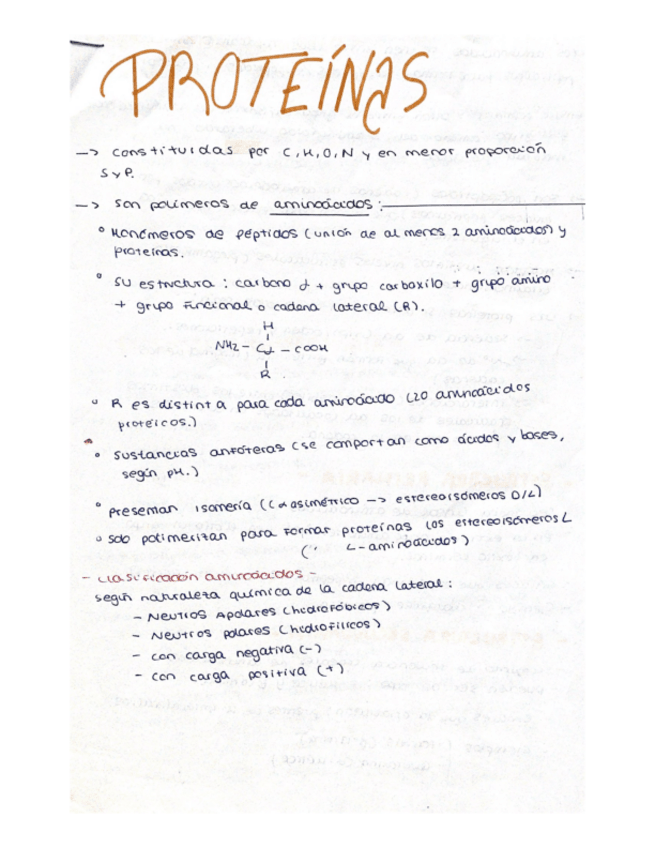 PROTEÍNAS
→ constituidas por C, H, O, N y en menor proporción
S y P.
→ son polímeros de aminoácidos:
° Monómeros de péptidos (unión de al menos 2 aminoácidos) y
proteínas.
° su estructura : carbono α + grupo carboxilo + grupo amino
+ grupo funcional o cadena lateral (R).
H
NH2 - Cα - COOH
R
° R es distinta para cada aminoácido (20 aminoácidos
proteicos.)
° sustancias anfóteras (se comportan como ácidos y bases,
según pH.)
° presentan isomería (Cα asimétrico → estereoisómeros D/L)
° solo polimerizan para formar proteínas los estereoisómeros L
(" L-aminoácidos")
- clasificación aminoácidos -
según naturaleza química de la cadena lateral :
- Neutros Apolares (hidrofóbicos)
- Neutros polares (hidrofílicos)
- con carga negativa (-)
- con carga positiva (+)